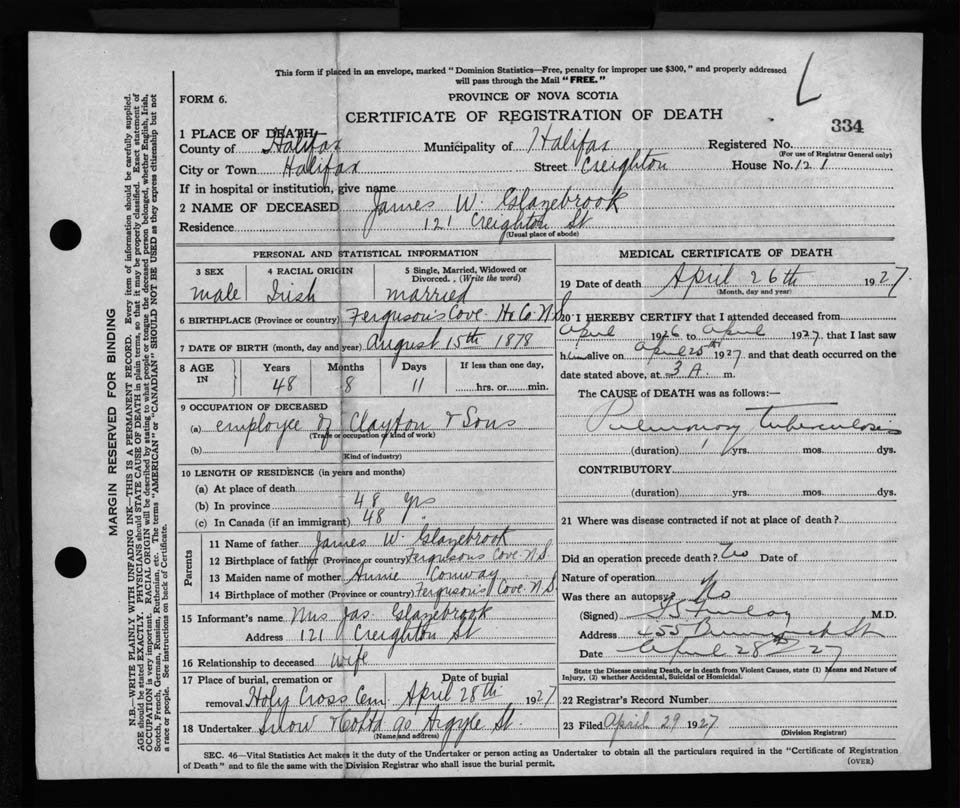 This form if placed in an envelope, marked "Dominion Statistics—Free, penalty for improper use $300," and properly addressed
will pass through the Mail "FREE."
L
FORM 6.
PROVINCE OF NOVA SCOTIA
CERTIFICATE OF REGISTRATION OF DEATH
334
1 PLACE OF DEATH
County of Halifax Municipality of Halifax Registered No.
(For use of Registrar General only)
City or Town Halifax Street Creighton House No. 121
If in hospital or institution, give name
2 NAME OF DECEASED James W. Glazebrook
Residence 121 Creighton St
(Usual place of abode)
PERSONAL AND STATISTICAL INFORMATION
3 SEX 4 RACIAL ORIGIN 5 Single, Married, Widowed or
Divorced. . (Write the word)
male Irish married
6 BIRTHPLACE (Province or country) Ferguson's Cove Hx Co. N.S.
7 DATE OF BIRTH (month, day and year) August 15th 1878
8 AGE IN Years Months Days If less than one day,
48 8 11 hrs. or min.
9 OCCUPATION OF DECEASED
(a) employee of Clayton & Sons
(Trade or occupation or kind of work)
(b)
(Kind of industry)
10 LENGTH OF RESIDENCE (in years and months)
(a) At place of death
(b) In province 48 yrs
(c) In Canada (if an immigrant) 48
Parents
11 Name of father James W. Glazebrook
12 Birthplace of father (Province or country) Fergusons Cove N.S.
13 Maiden name of mother Annie Conway
14 Birthplace of mother (Province or country) Ferguson's Cove N.S.
15 Informant's name Mrs Jas. Glazebrook
Address 121 Creighton St
16 Relationship to deceased wife
17 Place of burial, cremation or Date of burial
removal Holy Cross Cem. April 28th 1927
18 Undertaker Snow & Co Ltd 90 Argyle St.
(Name and address)
MEDICAL CERTIFICATE OF DEATH
19 Date of death April 26th 1927
(Month, day and year)
20 I HEREBY CERTIFY that I attended deceased from
April 1926 to April 1927, that I last saw
him alive on April 25th 1927 and that death occurred on the
date stated above, at 3 A. m.
The CAUSE of DEATH was as follows:—
Pulmonary Tuberculosis
(duration) 1 yrs. mos. dys.
CONTRIBUTORY
(duration) yrs. mos. dys.
21 Where was disease contracted if not at place of death?
Did an operation precede death? No Date of
Nature of operation
Was there an autopsy No
(Signed) Finlay M.D.
Address St
Date April 28 27
State the Disease causing Death, or in death from Violent Causes, state (1) Means and Nature of
Injury, (2) whether Accidental, Suicidal or Homicidal.
22 Registrar's Record Number
23 Filed April 29 1927
(Division Registrar)
SEC. 46—Vital Statistics Act makes it the duty of the Undertaker or person acting as Undertaker to obtain all the particulars required in the "Certificate of Registration
of Death" and to file the same with the Division Registrar who shall issue the burial permit.
(OVER)
MARGIN RESERVED FOR BINDING
N.B.—WRITE PLAINLY WITH UNFADING INK—THIS IS A PERMANENT RECORD. Every item of information should be carefully supplied.
AGE should be stated EXACTLY. PHYSICIANS should STATE CAUSE OF DEATH in plain terms, so that it may be properly classified. Exact statement of
OCCUPATION is very important. RACIAL ORIGIN will be described by stating to what people or tongue the deceased person belonged, whether English, Irish,
Scotch, French, German, Russian, Ruthenian, etc. The terms "AMERICAN" or "CANADIAN" SHOULD NOT BE USED as they express citizenship but not
a race or people. See instructions on back of Certificate.